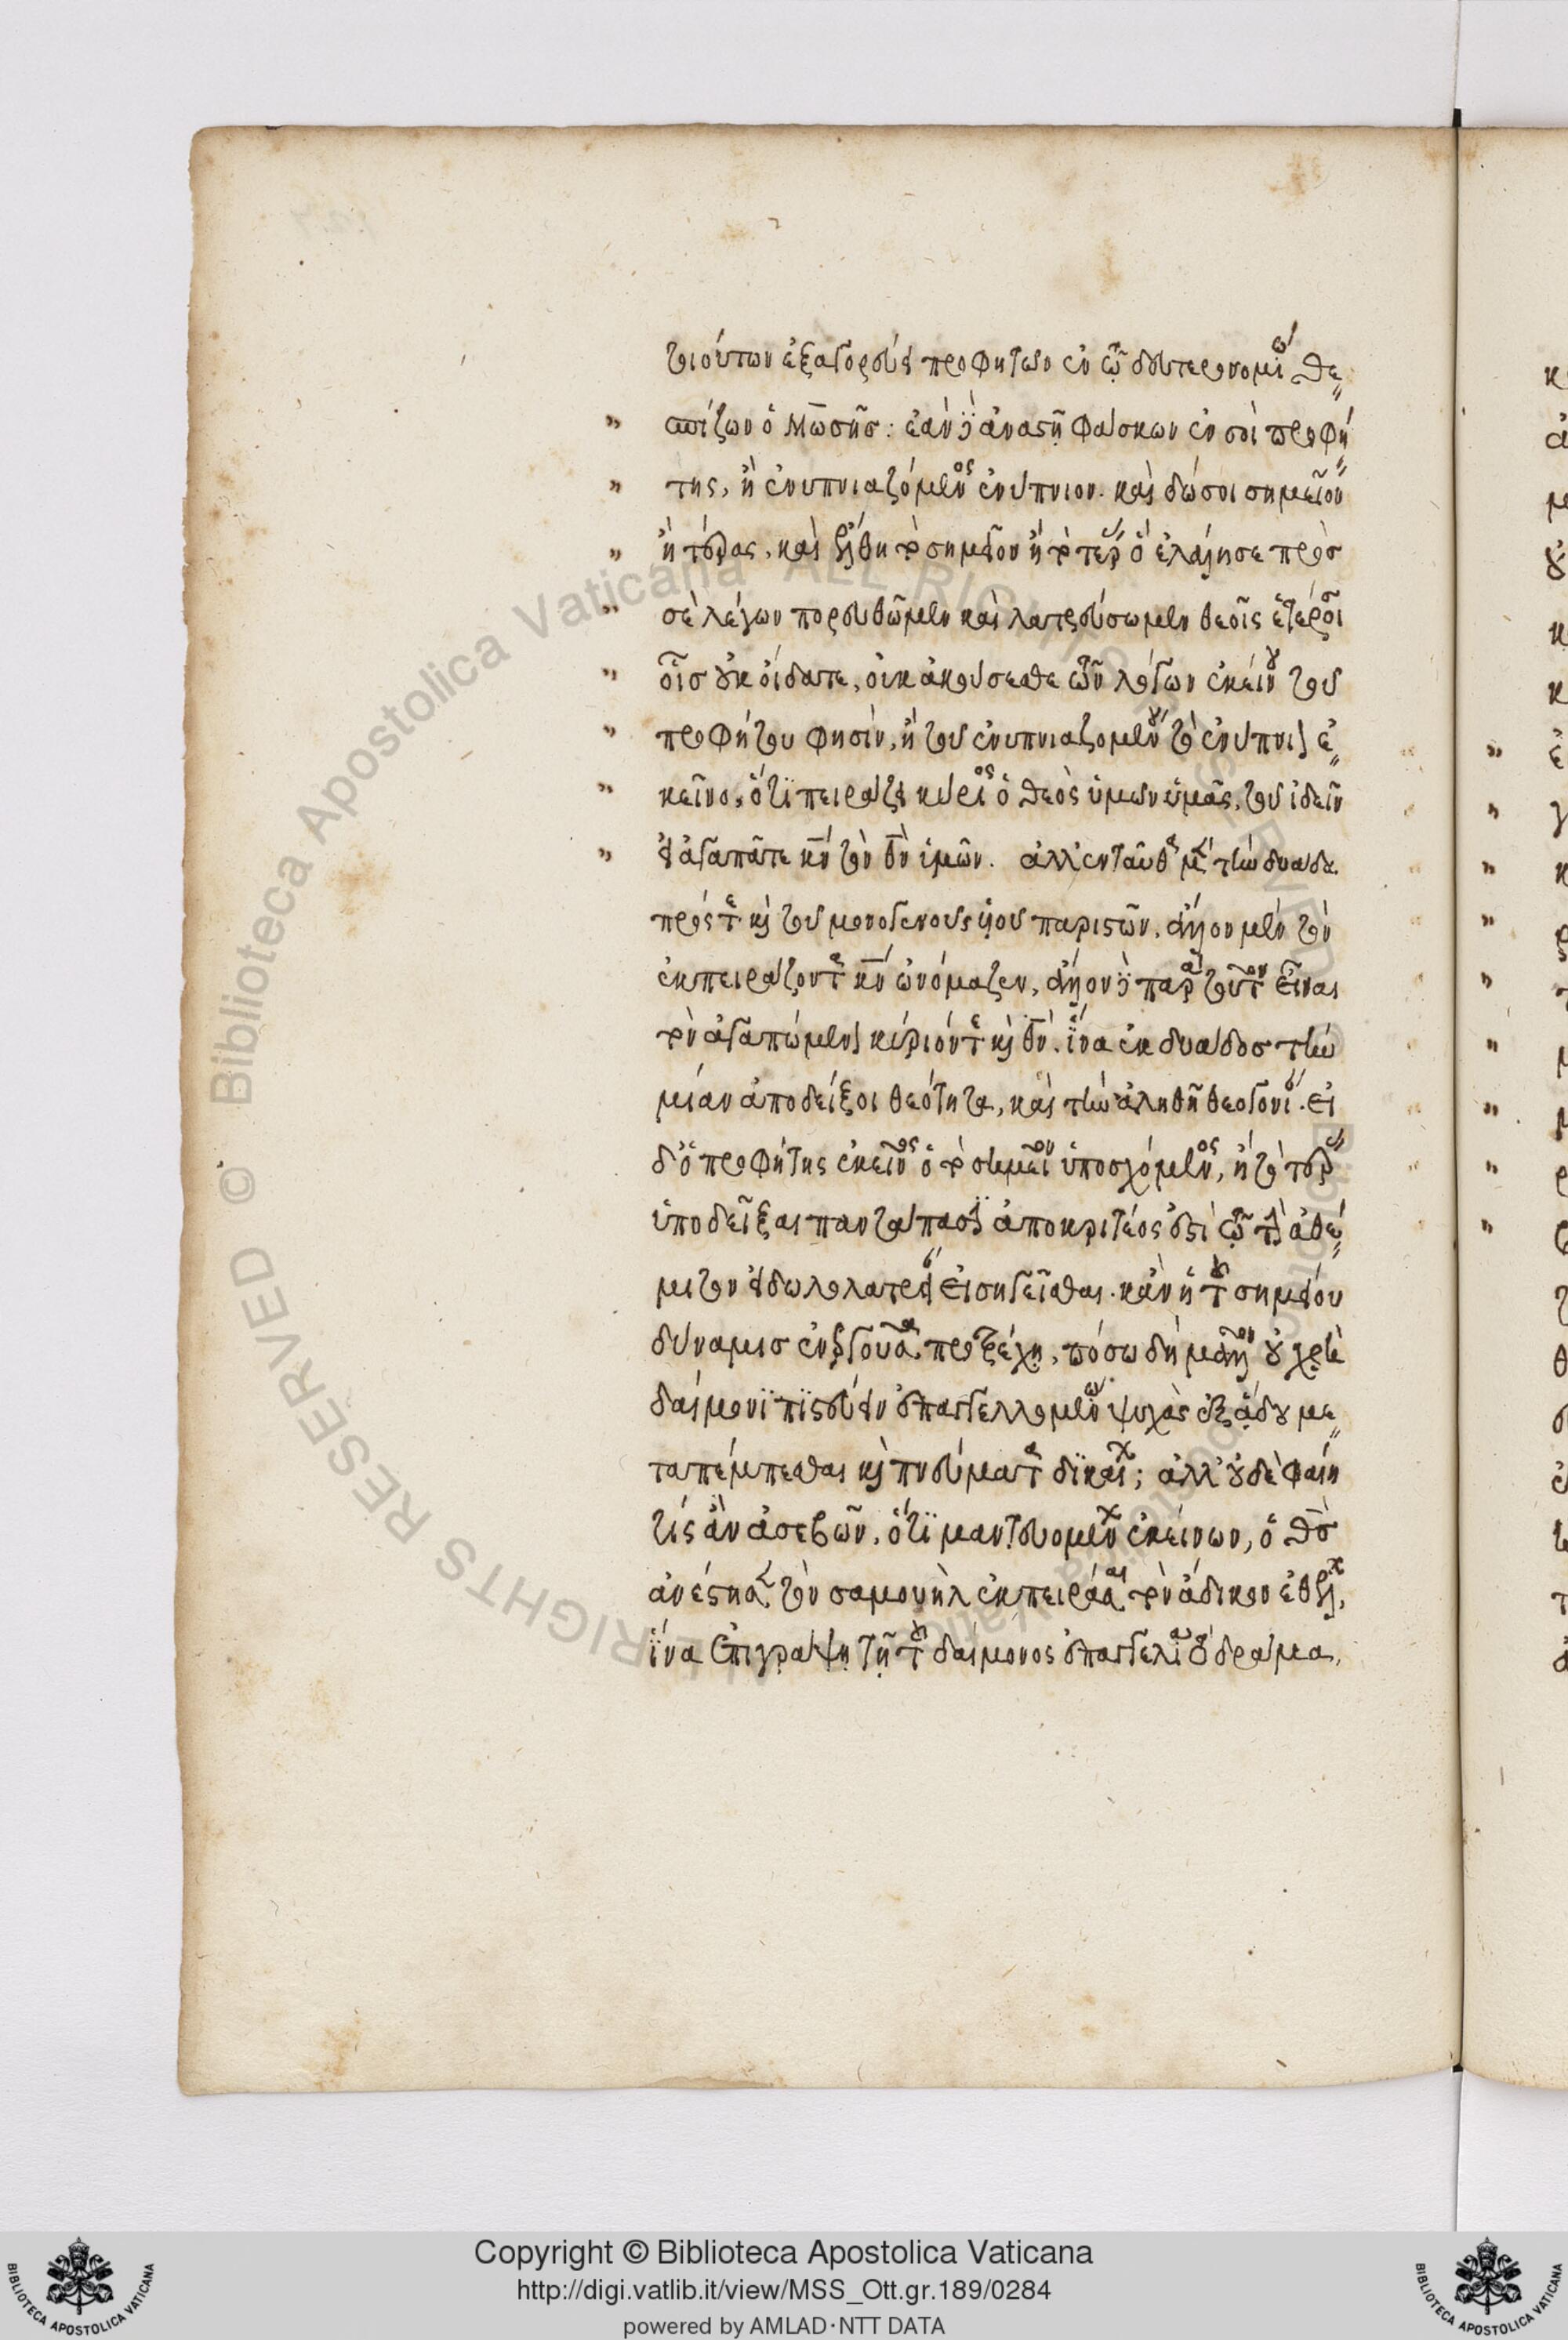 τοιούτων ἐξαγορεύει προφητῶν ἐν τῷ δευτερονομίῳ θε
σπίζων ὁ Μωσῆς: ἐὰν δὲ ἀναστῇ φάσκων ἐν σοὶ προφή
της, ἢ ἐνυπνιαζόμενος ἐνύπνιον. καὶ δώσοι σημεῖον
ἢ τέρας, καὶ ἔλθη τὸ σημεῖον ἢ τὸ τέρας ὃ ἐλάλησε πρὸσ
σὲ λέγων πορευθῶμεν καὶ λατρεύσωμεν θεοῖς ἑτέροις
οἷσ οὐκ οἴδατε, οὐκ ἀκούσεσθε τῶν λόγων ἐκείνου τοῦ
προφήτου φησὶν, ἢ τοῦ ἐνυπνιαζομένου τὸ ἐνύπνιον ἐ
κεῖνο, ὅτι πειράζει κύριος ὁ θεὸς ὑμων ὑμᾶς, τοῦ ἰδεῖν
εἰ ἀγαπᾶτε κν τὸν θν ὑμῶν. ἀλλ' ἐνταῦθα μὲν τὴν δυάδα
πρός τε καὶ τοῦ μονογενοῦς υἱοῦ παριστῶν, ἄλλον μὲν τὸν
ἐκπειράζοντα κν ὠνόμαζεν, ἄλλον δὲ παρὰ τοῦτον εἶναι
τὸν ἀγαπώμενον κύριόν τε καὶ θν. ἵνα ἐκ δυάδοσ τὴν
μίαν ἀποδείξοι θεότητα, καὶ τὴν ἀληθῆ θεογονίαν. εἰ
δ' ὁ προφήτης ἐκεῖνος ὁ τὸ σημεῖον ὑποσχόμενος, ἢ τὸ τέρας
ὑποδεῖξαι πανταπασιν ἀποκριτέος ἐστὶ τῷ τὴν ἀθέ
μιτον εἰδωλολατρείαν εἰσηγεῖσθαι. κἂν ἡ τοῦ σημείου
δύναμισ ἐνεργοῦσα προτρέχη, πόσω δὴ μᾶλλον οὐ χρὴ
δαίμονι πιστεύειν ἐπαγγελλομένω ψυχὰς ἐξ ἅδου με
ταπέμπεσθαι καὶ πνεύματα δικαίων; ἀλλ' οὐδὲ φαίη
τίς ἂν ἀσεβῶν, ὅτι μαντευομένων ἐκείνων, ὁ θσ
ἀνέστησε τὸν σαμουὴλ ἐκπειράσαι τὸν ἄδικον ἐθέλων,
ἵνα ἐπιγράψη τῇ τοῦ δαίμονος ἐπαγγελία τὸ δράμα,
Copyright © Biblioteca Apostolica Vaticana
http://digi.vatlib.it/view/MSS_Ott.gr.189/0284
powered by AMLAD·NTT DATA